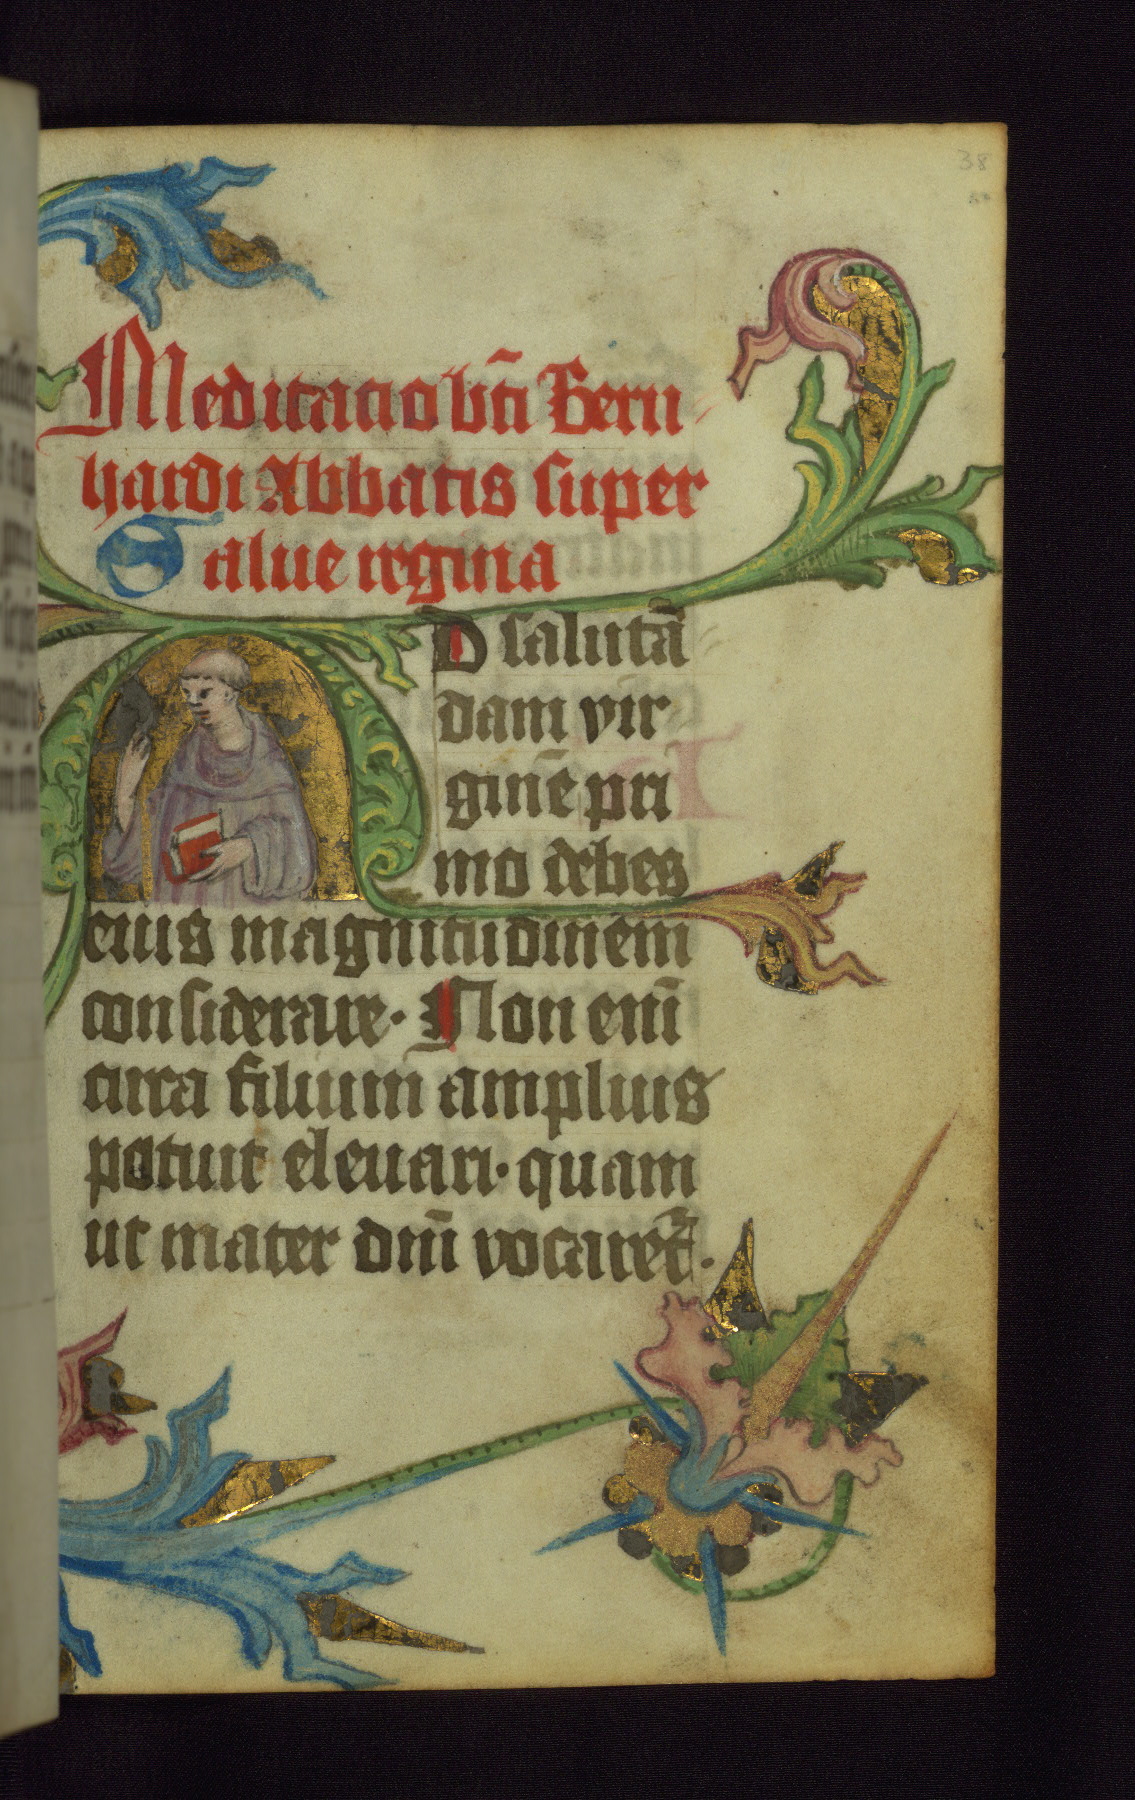 38
Meditatio bn̄ti Bern
hardi Abbatis super
Salue regina
AD salutā
dam vir
ginē pri
mo debes
eius magnitudinem
considerare. Non enī
circa filium amplius
potuit eleuari. quam
ut mater dnī vocaret᷑.